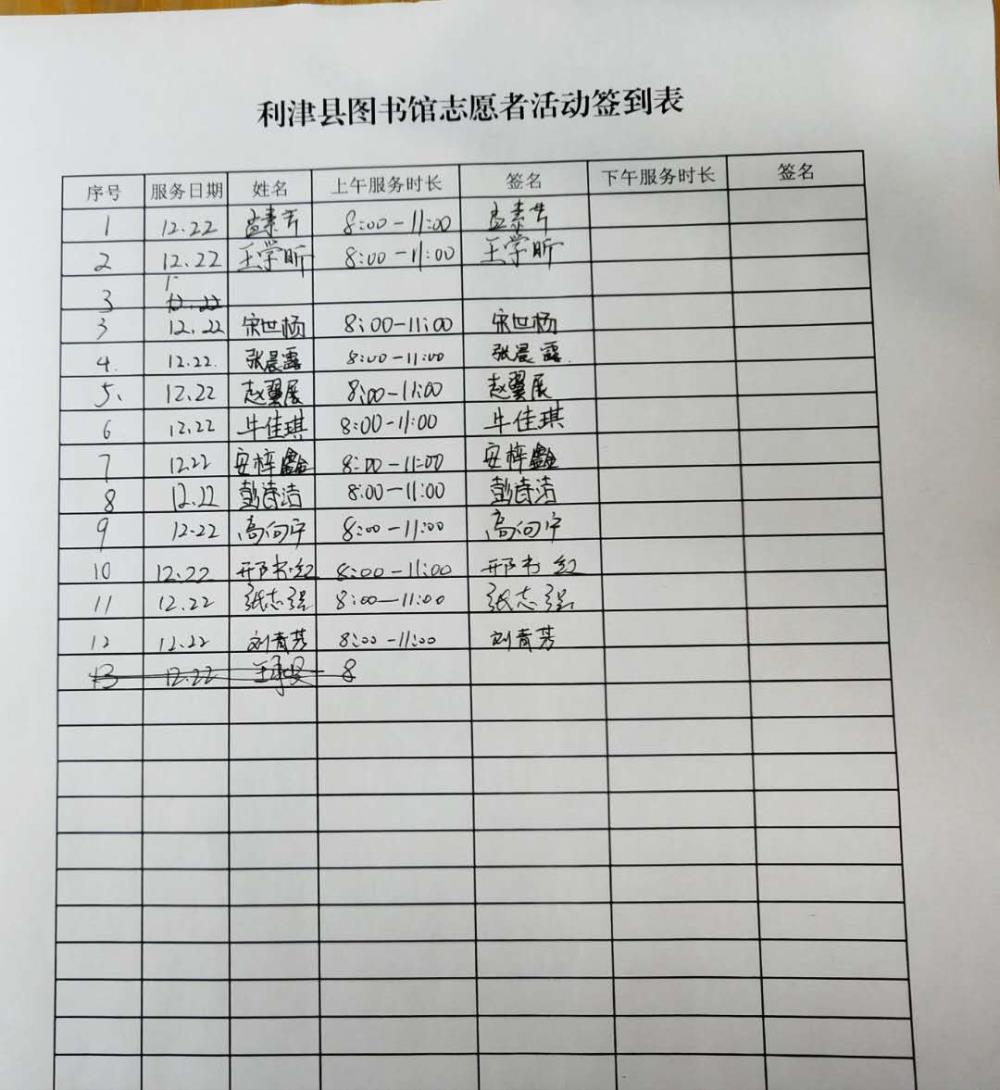 利津县图书馆志愿者活动签到表
序号 服务日期 姓名 上午服务时长 签名 下午服务时长 签名
1 12.22 孟素芹 8:00-11:00 孟素芹
2 12.22 王学昕 8:00-11:00 王学昕
3 12.22
3 12.22 宋世杨 8:00-11:00 宋世杨
4. 12.22. 张晨露 8:00-11:00 张晨露.
5、 12.22 赵翼展 8:00-11:00 赵翼展
6 12.22 牛佳琪 8:00-11:00 牛佳琪
7 12.22 安梓鑫 8:00-11:00 安梓鑫
8 12.22 彭诗洁 8:00-11:00 彭诗洁
9 12.22 高向宁 8:00-11:00 高向宁
10 12.22 邢书红 8:00-11:00 邢书红
11 12.22 张志强 8:00-11:00 张志强
12 12.22 刘青芳 8:00-11:00 刘青芳
13 12.22 8